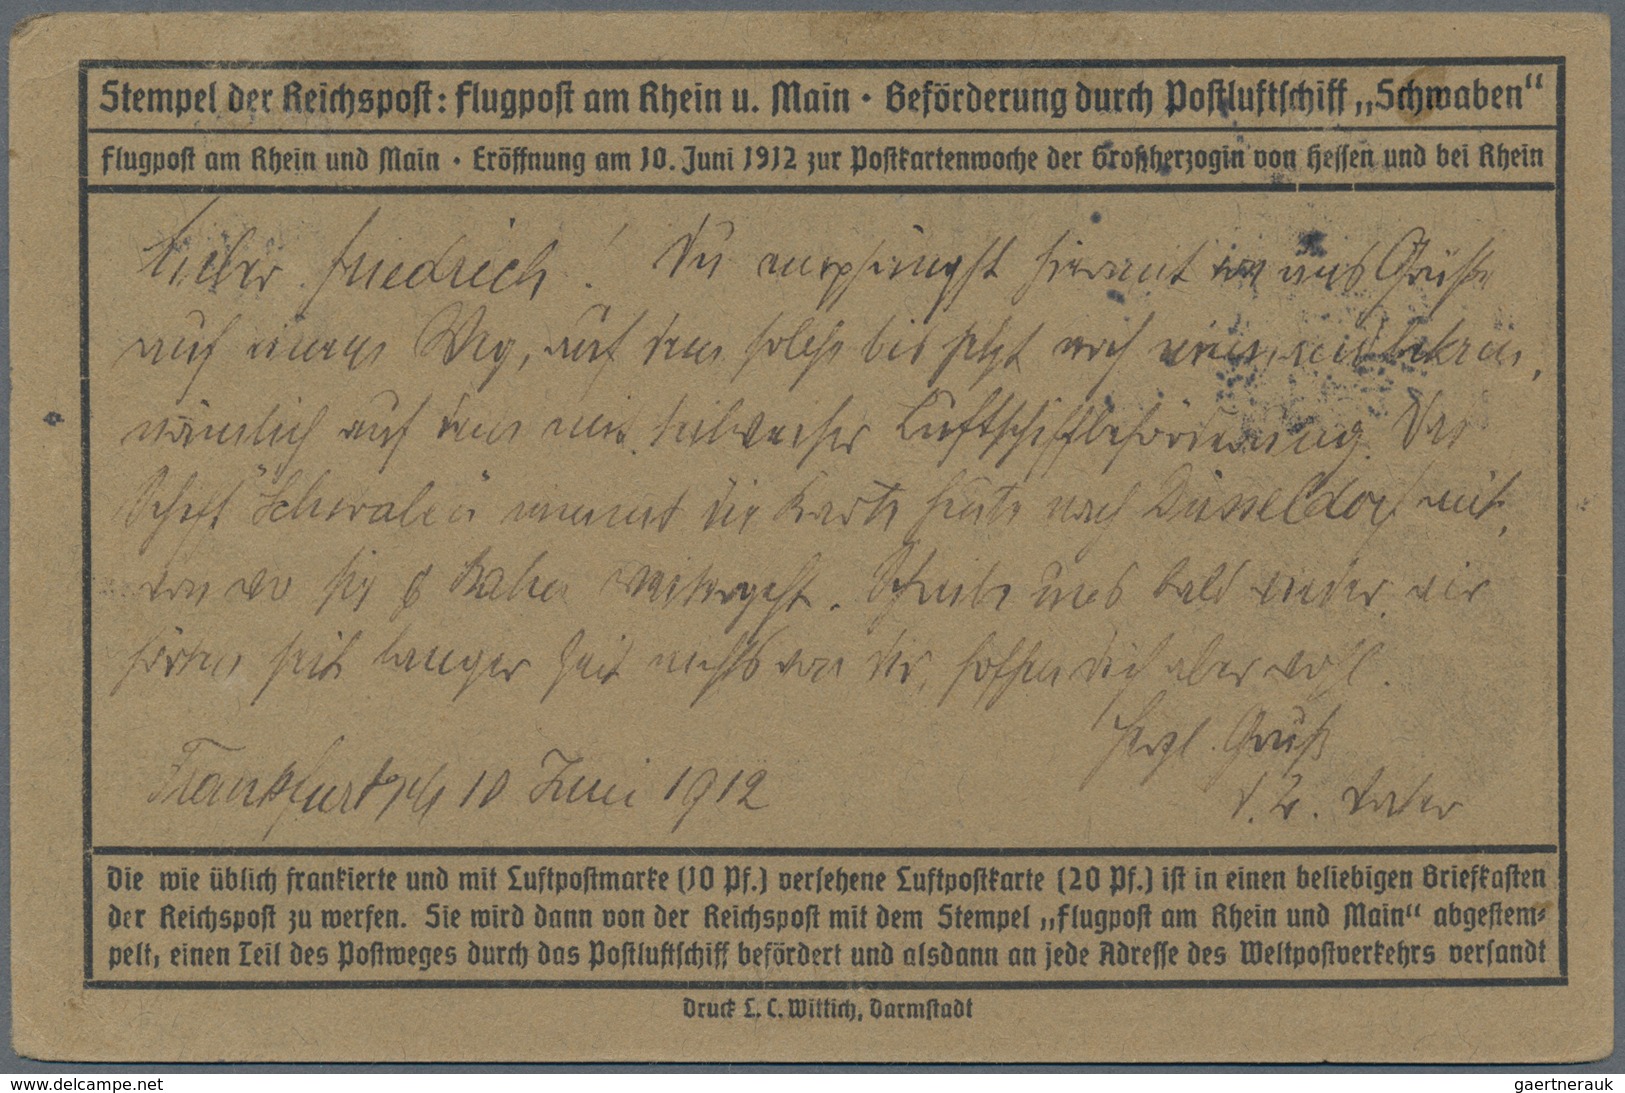 Stempel der Reichspost: Flugpost am Rhein u. Main · Beförderung durch Postluftschiff „Schwaben“
Flugpost am Rhein und Main · Eröffnung am 10. Juni 1912 zur Postkartenwoche der Großherzogin von Hessen und bei Rhein
Lieber Friedrich! Du empfängst hiermit von uns Grüße
auf einem Weg, auf dem solche bis jetzt noch
nämlich auf dem mit teilweiser Luftschiffbeförderung. Das
Schiff "Schwaben" nimmt die Karte heute nach Düsseldorf mit,
von wo sie p Bahn weitergeht. Schreibe uns bald wieder, wir
hörten seit langer Zeit nichts von Dir, hoffen Dich aber wohl.
Herzl. Gruß
Frankfurt 10 Juni 1912
Vater
Die wie üblich frankierte und mit Luftpostmarke (10 Pf.) versehene Luftpostkarte (20 Pf.) ist in einen beliebigen Briefkasten
der Reichspost zu werfen. Sie wird dann von der Reichspost mit dem Stempel „Flugpost am Rhein und Main“ abgestem-
pelt, einen Teil des Postweges durch das Postluftschiff befördert und alsdann an jede Adresse des Weltpostverkehrs versandt
Druck L. C. Wittich, Darmstadt
www.delcampe.net
gaertnerauk